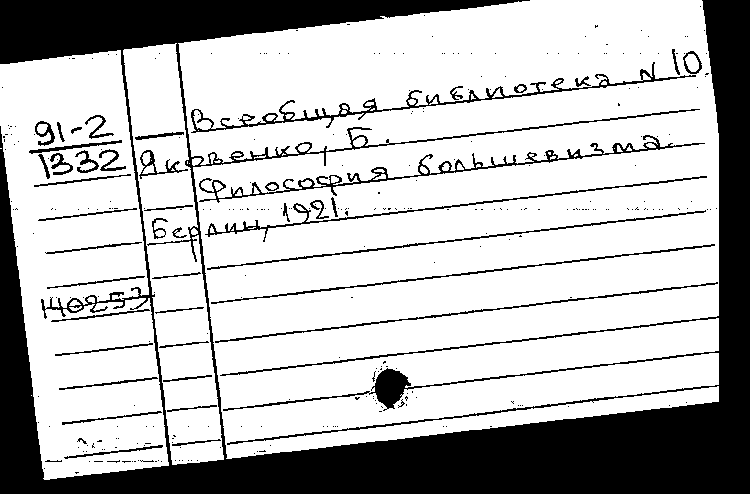 91-2 — Всеобщая библиотека. N 10
1332 Яковенко, Б.
Философия большевизма.
Берлин, 1921.
140253